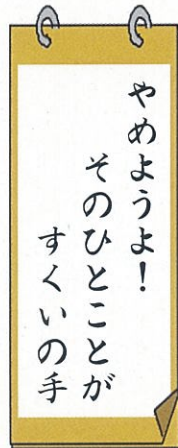 やめようよ！
そのひとことが
すくいの手